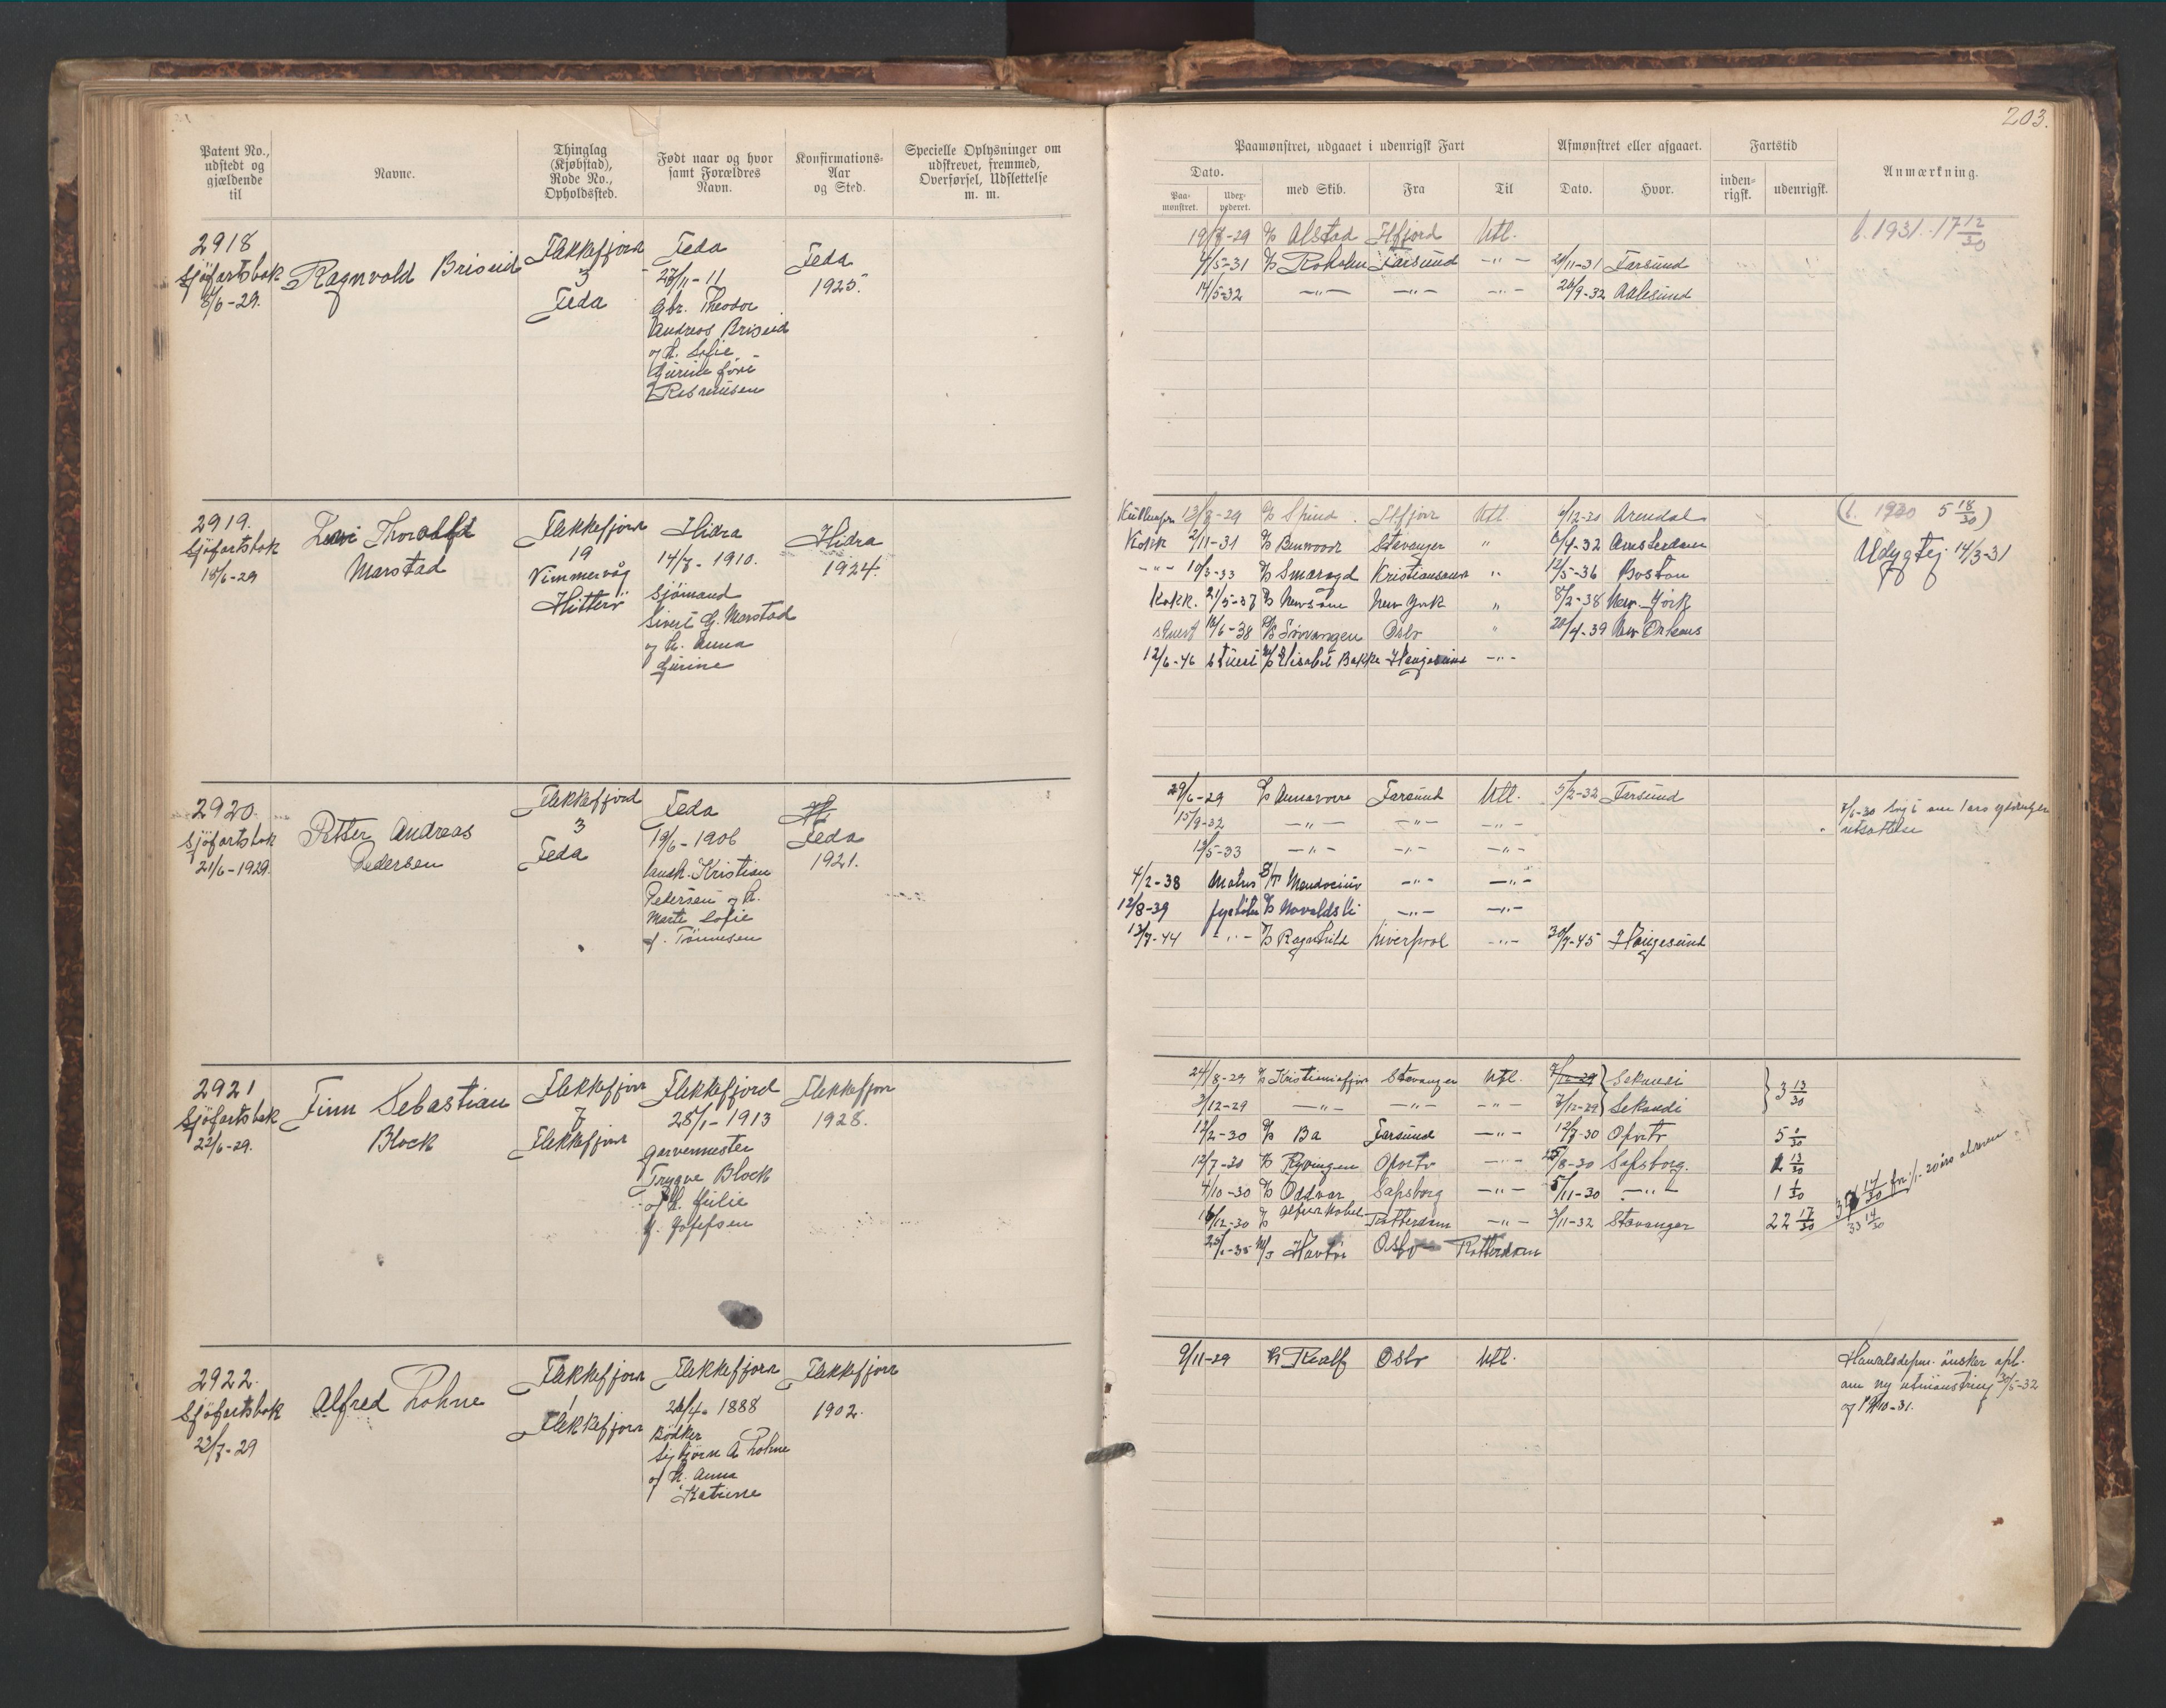 203.
Patent No., udstedt og gjældende til
Navne.
Thinglag (Kjøbstad), Rode No., Opholdssted.
Født naar og hvor samt Forældres Navn.
Konfirmations-Aar og Sted.
Specielle Oplysninger om udskrevet, fremmed, Overførsel, Udslettelse m. m.
Paamønstret, udgaaet i udenrigsk Fart
Dato.
Paa-mønstret.
med Skib.
Fra
Til
Afmønstret eller afgaaet.
Dato.
Hvor.
Fartstid
inden-rigsk.
udenrigsk.
Anmærkning.
2918
Sjøfartsbok
8/6-29.
Ragnvold Briseid
Flekkefjord
3
Feda
Feda
27/11-11
Gbr. Theodor
Andreas Briseid
og h. Sofie
Gurine født
Rasmussen
Feda
1925.
19/7-29 Alstad Ffjord Utl.
4/5-31 Roholm Farsund -"- 21/11-31 Farsund
14/5-32 -"- -"- -"- 26/9-32 Aalesund
1931. 17 12/30
2919.
Sjøfartsbok
18/6-29
Levi Thoralf
Marstad
Flekkefjord
19
Vimmervåg
Hitterø
Hidra
14/8-1910.
Sjømand
Sivert G. Marstad
og h. Anna
Gurine
Hidra
1924.
13/8-29 Spind Ffjord Utl. Arendal
Kokk 2/11-31 Benwood Stavanger " 6/4-32 Amsterdam
-"- 10/3-33 Smaragd Kristiansund " 12/5-36 Boston
Kokk. 21/5-37 New York " 8/2-38 New York
Stuert 16/6-38 Sørvangen Oslo " 20/4-39 New Orleans
12/6-46 Stuert Elisabet Bakke Haugesund -"-
1930 5 18/30
Udygtig 14/3-31
2920.
Sjøfartsbok
21/6-1929.
Petter Andreas
Pedersen
Flekkefjord
3
Feda
Feda
19/6-1906
Kristian
Pedersen og h.
Marte Sofie
f. Tønnesen
Feda
1921.
29/6-29 Farsund Utl. 5/2-32 Farsund
15/9-32 -"- -"- -"-
19/5-33 -"- -"- -"-
4/2-38 Matros Mendocino -"- -"-
12/8-39 -"- -"-
13/7-44 -"- Ragnhild Liverpool -"- 30/7-45 Haugesund
7/6-30 om 1 aars
utsættelse
2921
Sjøfartsbok
22/6-29.
Finn Sebastian
Block
Flekkefjord
7
Flekkefjord
Flekkefjord
28/1-1913
Garvermester
Trygve Block
og h. Julie
f. Josefsen
Flekkefjord
1928.
24/8-29 Kristianiafjord Stavanger Utl. 7/12-29 Sekondi
3/12-29 -"- -"- -"- 7/12-29 Sekondi
3 13/30
12/2-30 Ba Farsund -"- 12/7-30 Oporto 5 1/30
12/7-30 Ryvingen Oporto -"- 25/8-30 Sarpsborg. 1 13/30
4/10-30 Oddvar Sarpsborg -"- 5/11-30 -"- 1 1/30
16/12-30 Alfred Nobel Rotterdam -"- 3/11-32 Stavanger 22 17/30
25/1-35 M/S Havtor Oslo Rotterdam
14/30 20 års alderen
33 14/30
2922.
Sjøfartsbok
23/7-29
Alfred Lohne
Flekkefjord
1
Flekkefjord
Flekkefjord
26/4-1888
Bødker
Sigbjørn A Lohne
og h. Anna
Katrine
Flekkefjord
1902.
9/11-29 Realf Oslo Utl.
Handelsdepm. ønsker opl.
om ny utmønstring 30/5-32
og